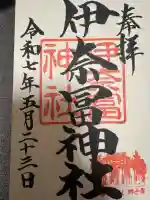 奉拝
伊奈冨神社
伊奈冨
神社
令和七年五月二十三日